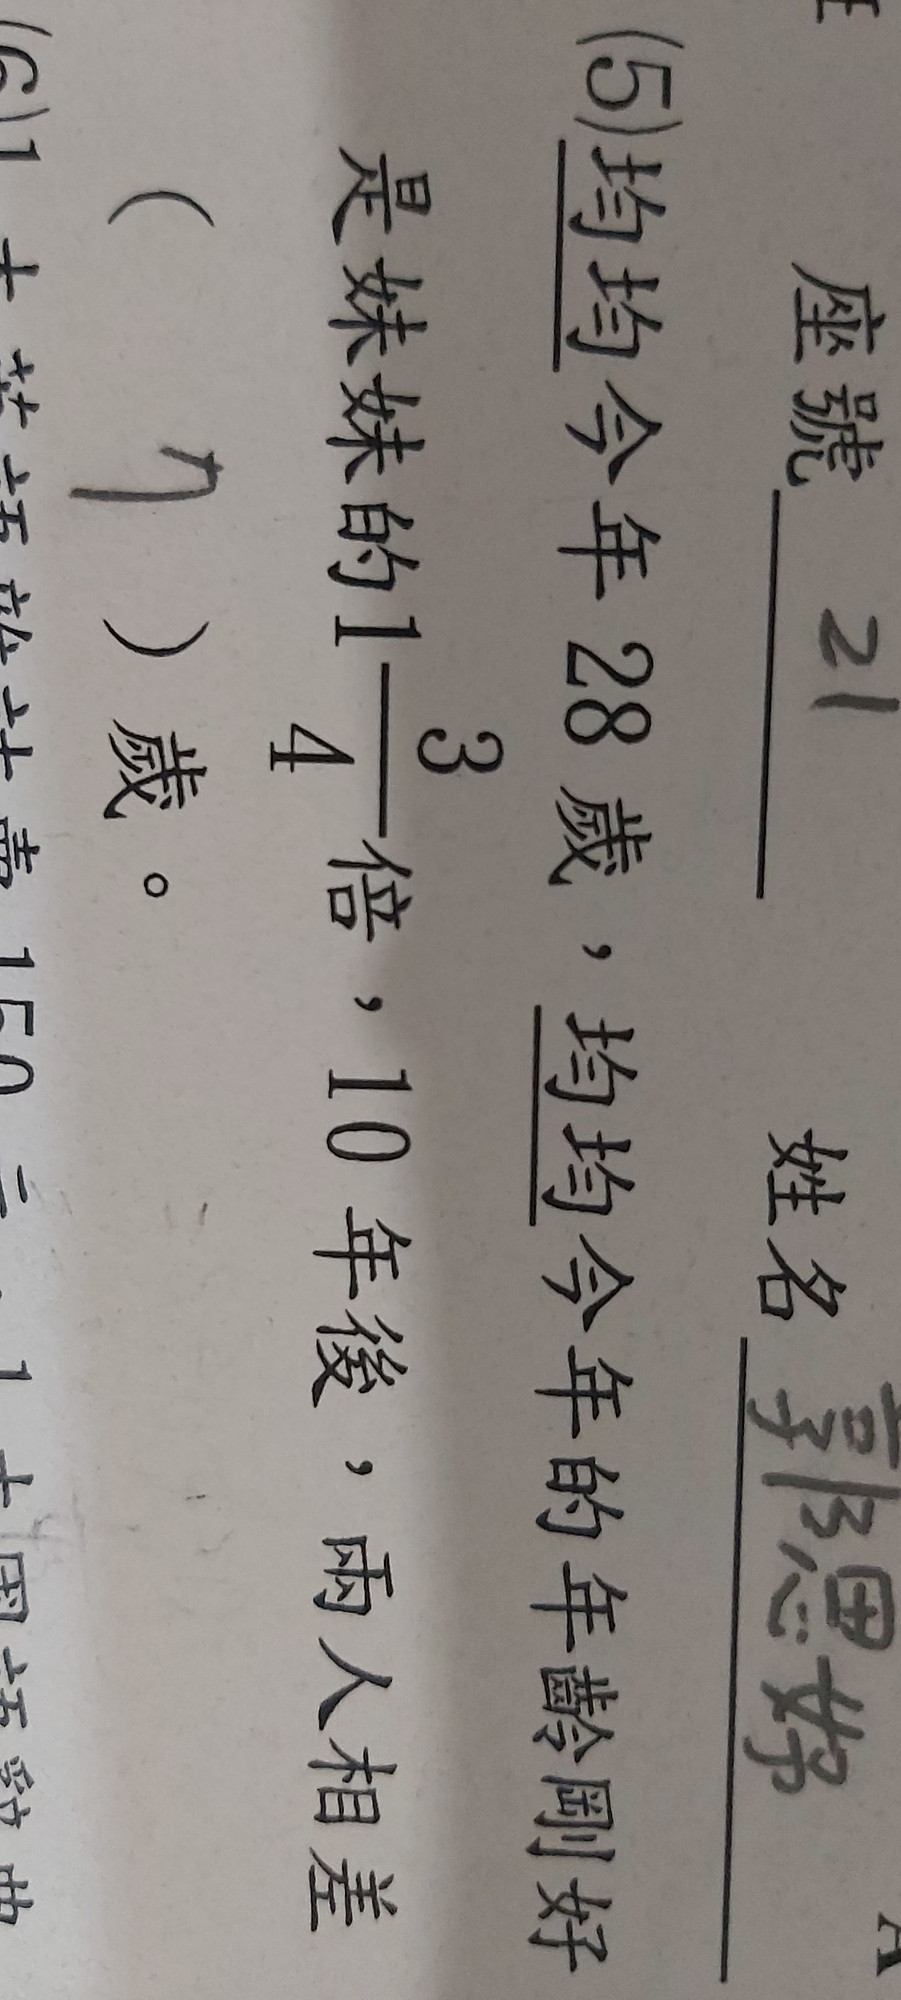 座號 21 姓名 郭思妤
(5)均均今年 28 歲，均均今年的年齡剛好
是妹妹的1 3/4 倍，10 年後，兩人相差
( 7 ) 歲。